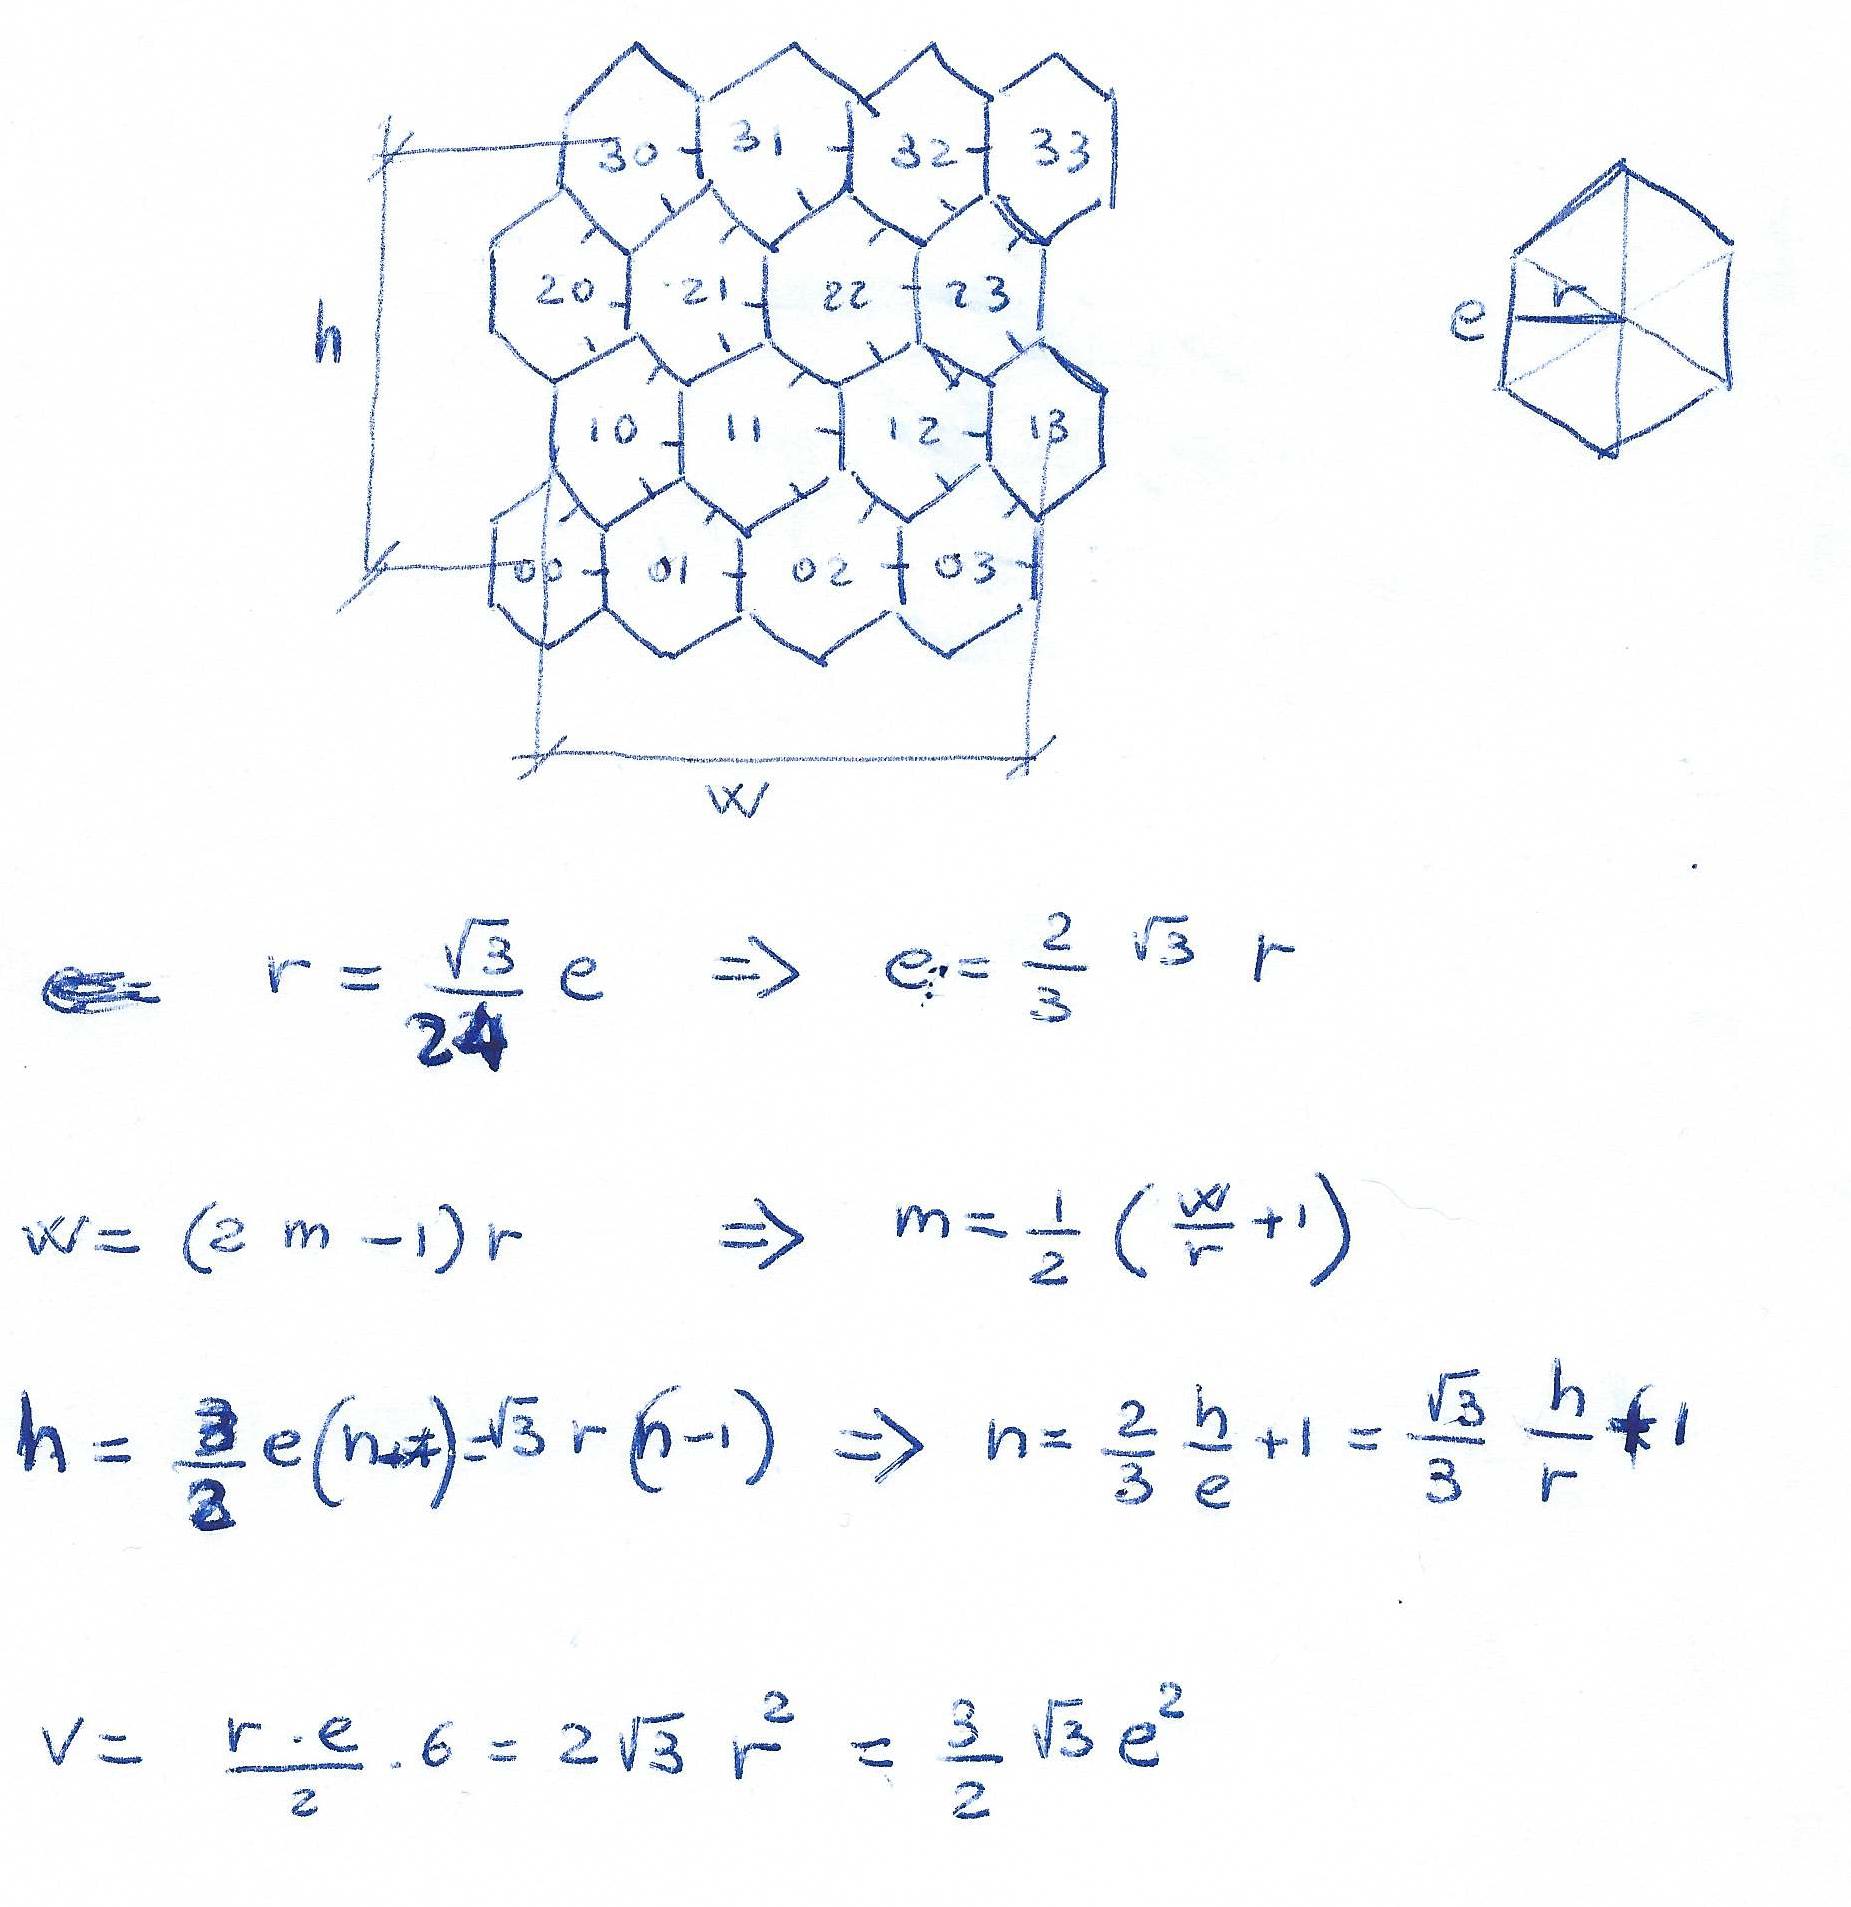 30 31 32 33
20 21 22 23
h
e r
10 11 12 13
00 01 02 03
w
r = √3/2 e => e = 2/3 √3 r
w = (2 m - 1) r => m = 1/2 ( w/r + 1 )
h = 3/2 e (n-1) = √3 r (n-1) => n = 2/3 h/e + 1 = √3/3 h/r + 1
v = r . e/2 . 6 = 2 √3 r² = 3/2 √3 e²